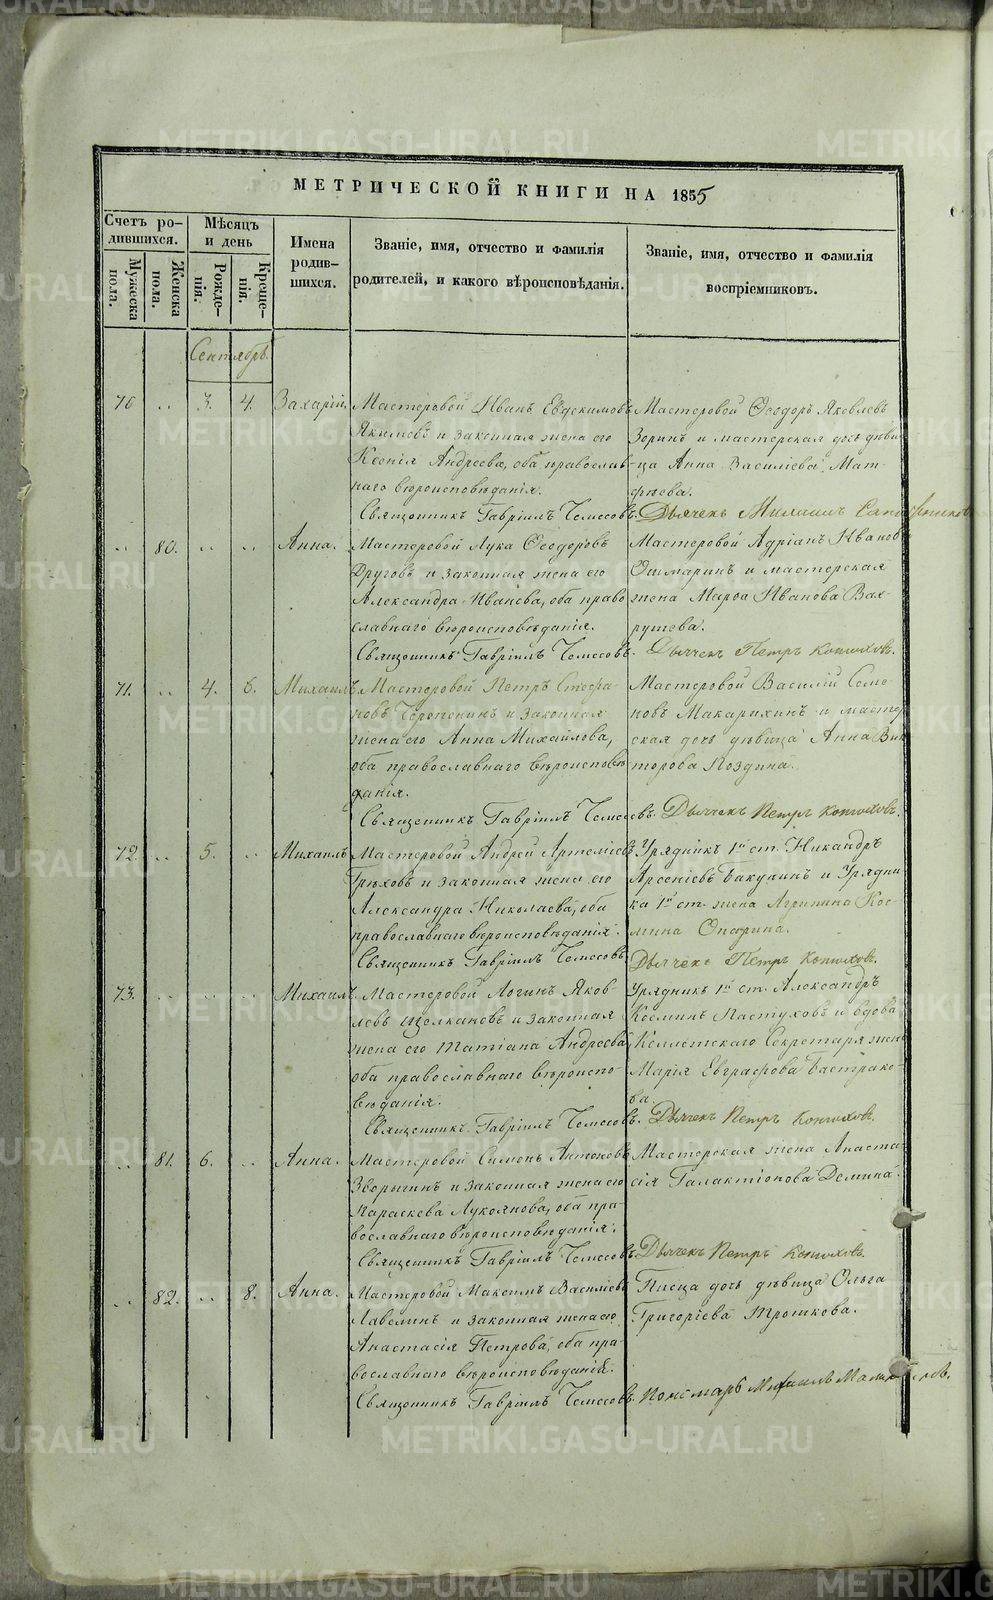 МЕТРИЧЕСКОЙ КНИГИ НА 1855
Счетъ родившихся.
Мѣсяцъ и день
Имена родившихся.
Званіе, имя, отчество и фамилія родителей, и какого вѣроисповѣданія.
Званіе, имя, отчество и фамилія воспріемниковъ.
Мужеска пола.
Женска пола.
Рожденія.
Крещенія.
Сентябрь.
70 .. 3. 4. Захарій.
Мастеровой Иванъ Евдокимовъ
Якимовъ и законная жена его
Ксенія Андреева, оба православ-
наго вѣроисповѣданія.
Священникъ Гавріилъ
Мастеровой Ѳеодоръ Яковлевъ
Зоринъ и мастерская дочь дѣви-
ца Анна Василіева Мат-
фѣева.
Дьячекъ Михаилъ
.. 80. .. .. Анна.
Мастеровой Лука Ѳеодоровъ
Друговъ и законная жена его
Александра Иванова, оба право
славнаго вѣроисповѣданія.
Священникъ Гавріилъ
Мастеровой Адріанъ Ивановъ
Ошмаринъ и мастерская
жена Марѳа Иванова Вах-
рушева.
Дьячекъ Петръ Конюховъ.
71. .. 4. 6. Михаилъ
Мастеровой Петръ Стефа-
новъ Черепенинъ и законная
жена его Анна Михайлова,
оба православнаго вѣроисповѣ
данія.
Священникъ Гавріилъ
Мастеровой Василій Семе-
новъ Макарихинъ и мастер
ская дочь дѣвица Анна Вик
торова Поздина.
Дьячекъ Петръ Конюховъ.
72. .. 5. .. Михаилъ
Мастеровой Андрей Артеміевъ
Грѣховъ и законная жена его
Александра Николаева, оба
православнаго вѣроисповѣданія.
Священникъ Гавріилъ
Урядникъ 1й ст. Никандръ
Арсеніевъ Бакулинъ и Урядни
ка 1й ст. жена Агрипина Кос-
мина Опарина.
Дьячекъ Петръ Конюховъ.
73. .. .. .. Михаилъ.
Мастеровой Логинъ Яков-
левъ Щелкановъ и законная
жена его Татіана Андреева
оба православнаго вѣроиспо-
вѣданія.
Священникъ Гавріилъ
Урядникъ 1й ст. Александръ
Косминъ Пастуховъ и вдова
Секретаря жена
Марія Евграфова Бастрако-
ва.
Дьячекъ Петръ Конюховъ.
.. 81. 6. .. Анна.
Мастеровой Симонъ Антоновъ
Зворыгинъ и законная жена его
Параскева Лукоянова, оба пра-
вославнаго вѣроисповѣданія.
Священникъ Гавріилъ
Мастерская жена Анаста
сія Галактіонова Демина.
Дьячекъ Петръ Конюховъ.
.. 82. .. 8. Анна.
Мастеровой Максимъ Василіевъ
Лавелинъ и законная жена его
Анастасія Петрова, оба пра-
вославнаго вѣроисповѣданія.
Священникъ Гавріилъ
Писца дочь дѣвица Ольга
Григоріева Трошкова.
Пономарь Михаилъ
METRIKI.GASO-URAL.RU